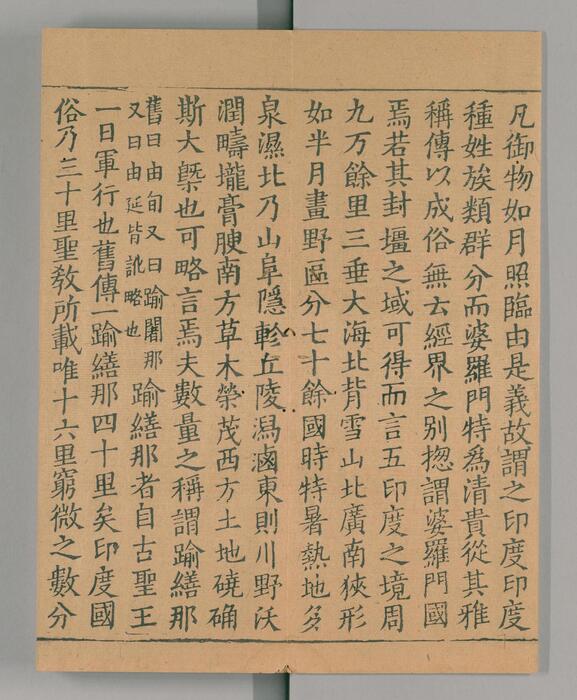 凡御物如月照臨由是義故謂之印度印度
種姓族類群分而婆羅門特爲清貴從其雅
稱傳以成俗無云經界之別惣謂婆羅門國
焉若其封壃之域可得而言五印度之境周
九万餘里三垂大海北背雪山北廣南狹形
如半月畫野區分七十餘國時特暑熱地多
泉濕北乃山阜隱軫丘陵潟滷東則川野沃
潤疇壠膏腴南方草木榮茂西方土地磽确
斯大槩也可略言焉夫數量之稱謂踰繕那
舊曰由旬又曰踰闍那
又曰由延皆訛略也
踰繕那者自古聖王
一日軍行也舊傳一踰繕那四十里矣印度國
俗乃三十里聖教所載唯十六里窮微之數分